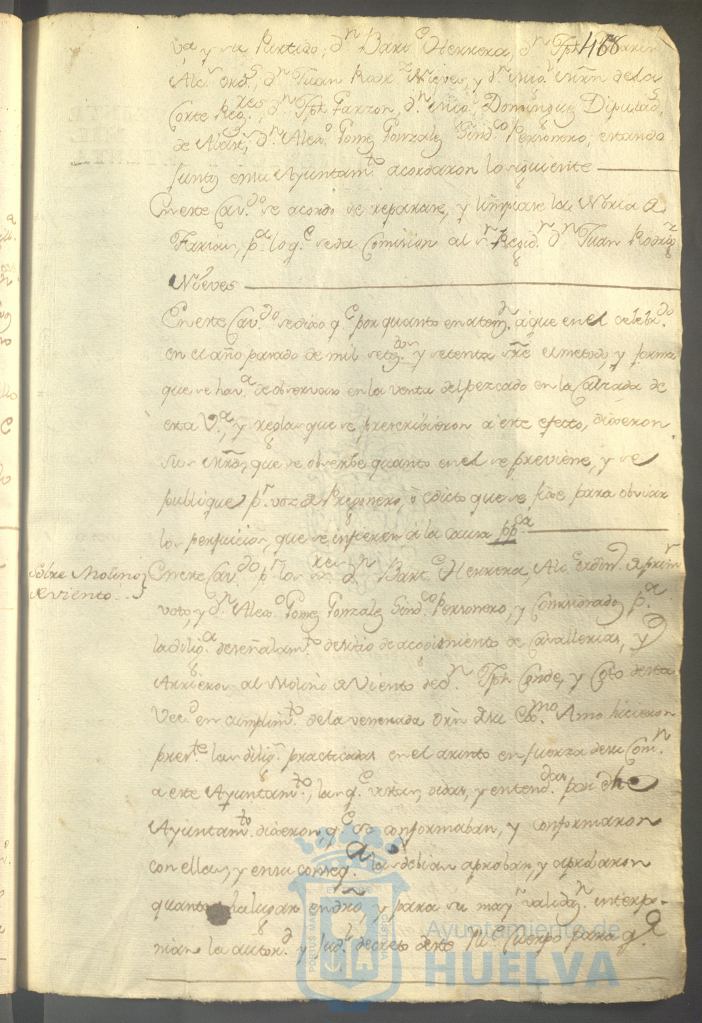 468
va y su Partido, Dn. Bart.e Herrera, Dn. Jph
Alc.s ord.s, Dn. Juan Rodr.z Nieves, y Dn. Nic.o Mrñ de la
Corte Reg.res, Dn. Jph Garzon, Dn. Nic.o Dominguez Diputad.s
de Abast.s, Dn. Alex.o Gomez Gonzalez Sind.co Personero, estando
juntos en su Ayuntam.to acordaron lo siguiente
En este Cav.do se acordó se reparase, y limpiase la Noria de
p.a lo q.e se da Comision al s.r Regid.r Dn. Juan Rodrig.z
Nieves
En este Cav.do se dixo q.e por quanto en atenz.n a que en el celebr.do
en el año pasado de mil setez.tos y setenta sre. el metodo, y forma
que se hav.a de observar en la venta del pezcado en la Calzada de
esta V.a, y reglas que se prescribieron a este efecto, dixeron
sus mrds, que se observe quanto en el se previene, y se
publique p.r voz de Pregonero, o edicto que se fixe para obviar
los perjuicios, que se infieren a la causa pp.ca
Sobre Molinos
de viento
En este Cav.do p.r los s.res Dn. Bart.e Herrera, Alc.e ordin.o de prim.r
voto, y Dn. Alex.o Gomez Gonzalez Sind.co Personero, y Comisionados p.a
la dilig.a de señalam.to de sitio de acogimiento de Cavallerias, y
Arrieros al Molino de Viento de Dn. Jph Conde, y Coto desta
Vec.d en cumplim.to de la venerada orñ del Exc.mo Amo hicieron
pres.te las dilig.s practicadas en el asunto en fuerza de su Com.n
a este Ayuntam.to, las q.e vistas, oidas, y entend.das por dho
Ayuntam.to dixeron, q.e se conformaban, y conformaron
con ellas, y en su conseq.a las debian aprobar, y aprobaron
quanto ha lugar en dro, y para su may.r validaz.n interpo-
nian la autor.d y Jud.l decreto deste Ille. Cuerpo para q.e
Ayuntamiento de
HUELVA